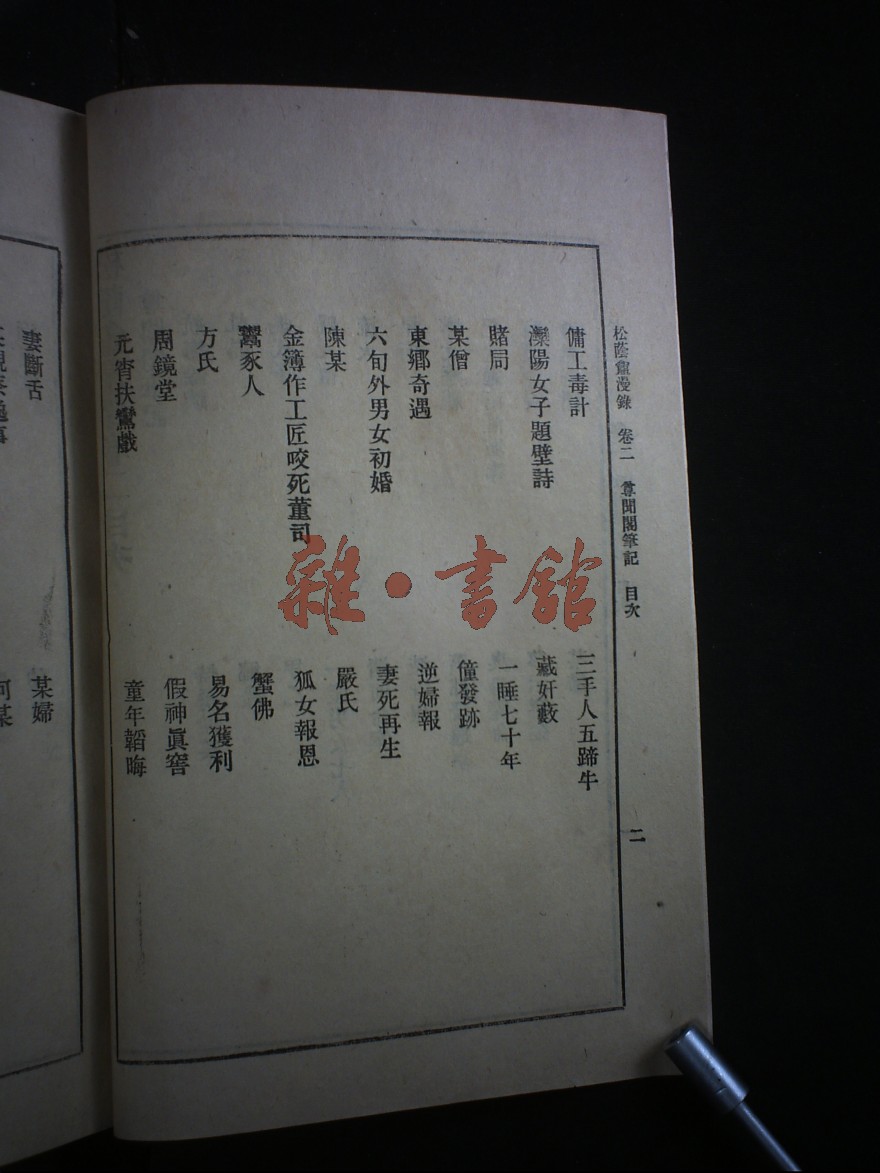 松蔭盦漫錄 卷二 尊聞閣筆記 目次 二
傭工毒計 三手人五蹄牛
灤陽女子題壁詩 藏奸藪
賭局 一睡七十年
某僧 僮發跡
東鄉奇遇 逆婦報
六旬外男女初婚 妻死再生
陳某 嚴氏
金簿作工匠咬死董司 狐女報恩
鬻豕人 蟹佛
方氏 易名獲利
周鏡堂 假神眞窖
元宵扶鸞戲 童年韜晦
妻斷舌 某婦
雜·書館